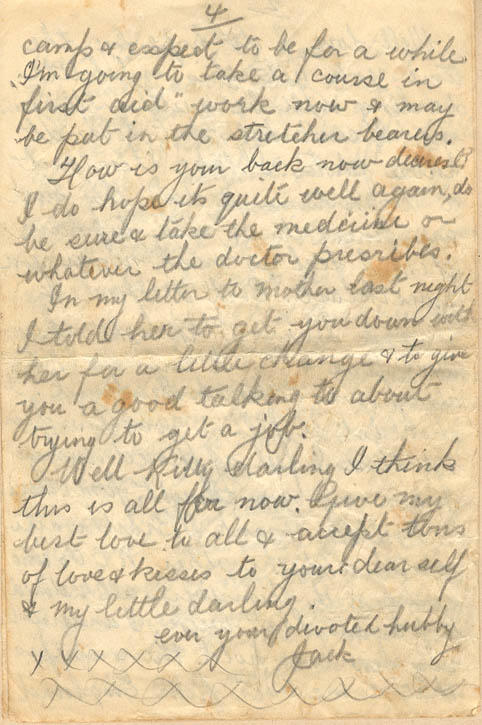 4
camp & expect to be for a while
I'm going to take a course in
"first aid" work now & may
be put in the stretcher bearers.
How is your back now dearest?
I do hope its quite well again, do
be sure & take the medicine or
whatever the doctor prescribes.
In my letter to Mother last night
I told her to get you down with
her for a little change & to give
you a good talking to about
trying to get a job.
Well Kitty darling I think
this is all for now. Give my
best love to all & accept tons
of love & kisses to your dear self
& my little darling.
ever your divoted hubby
Jack
x x x x x x x x
x x x x x x x x x x x